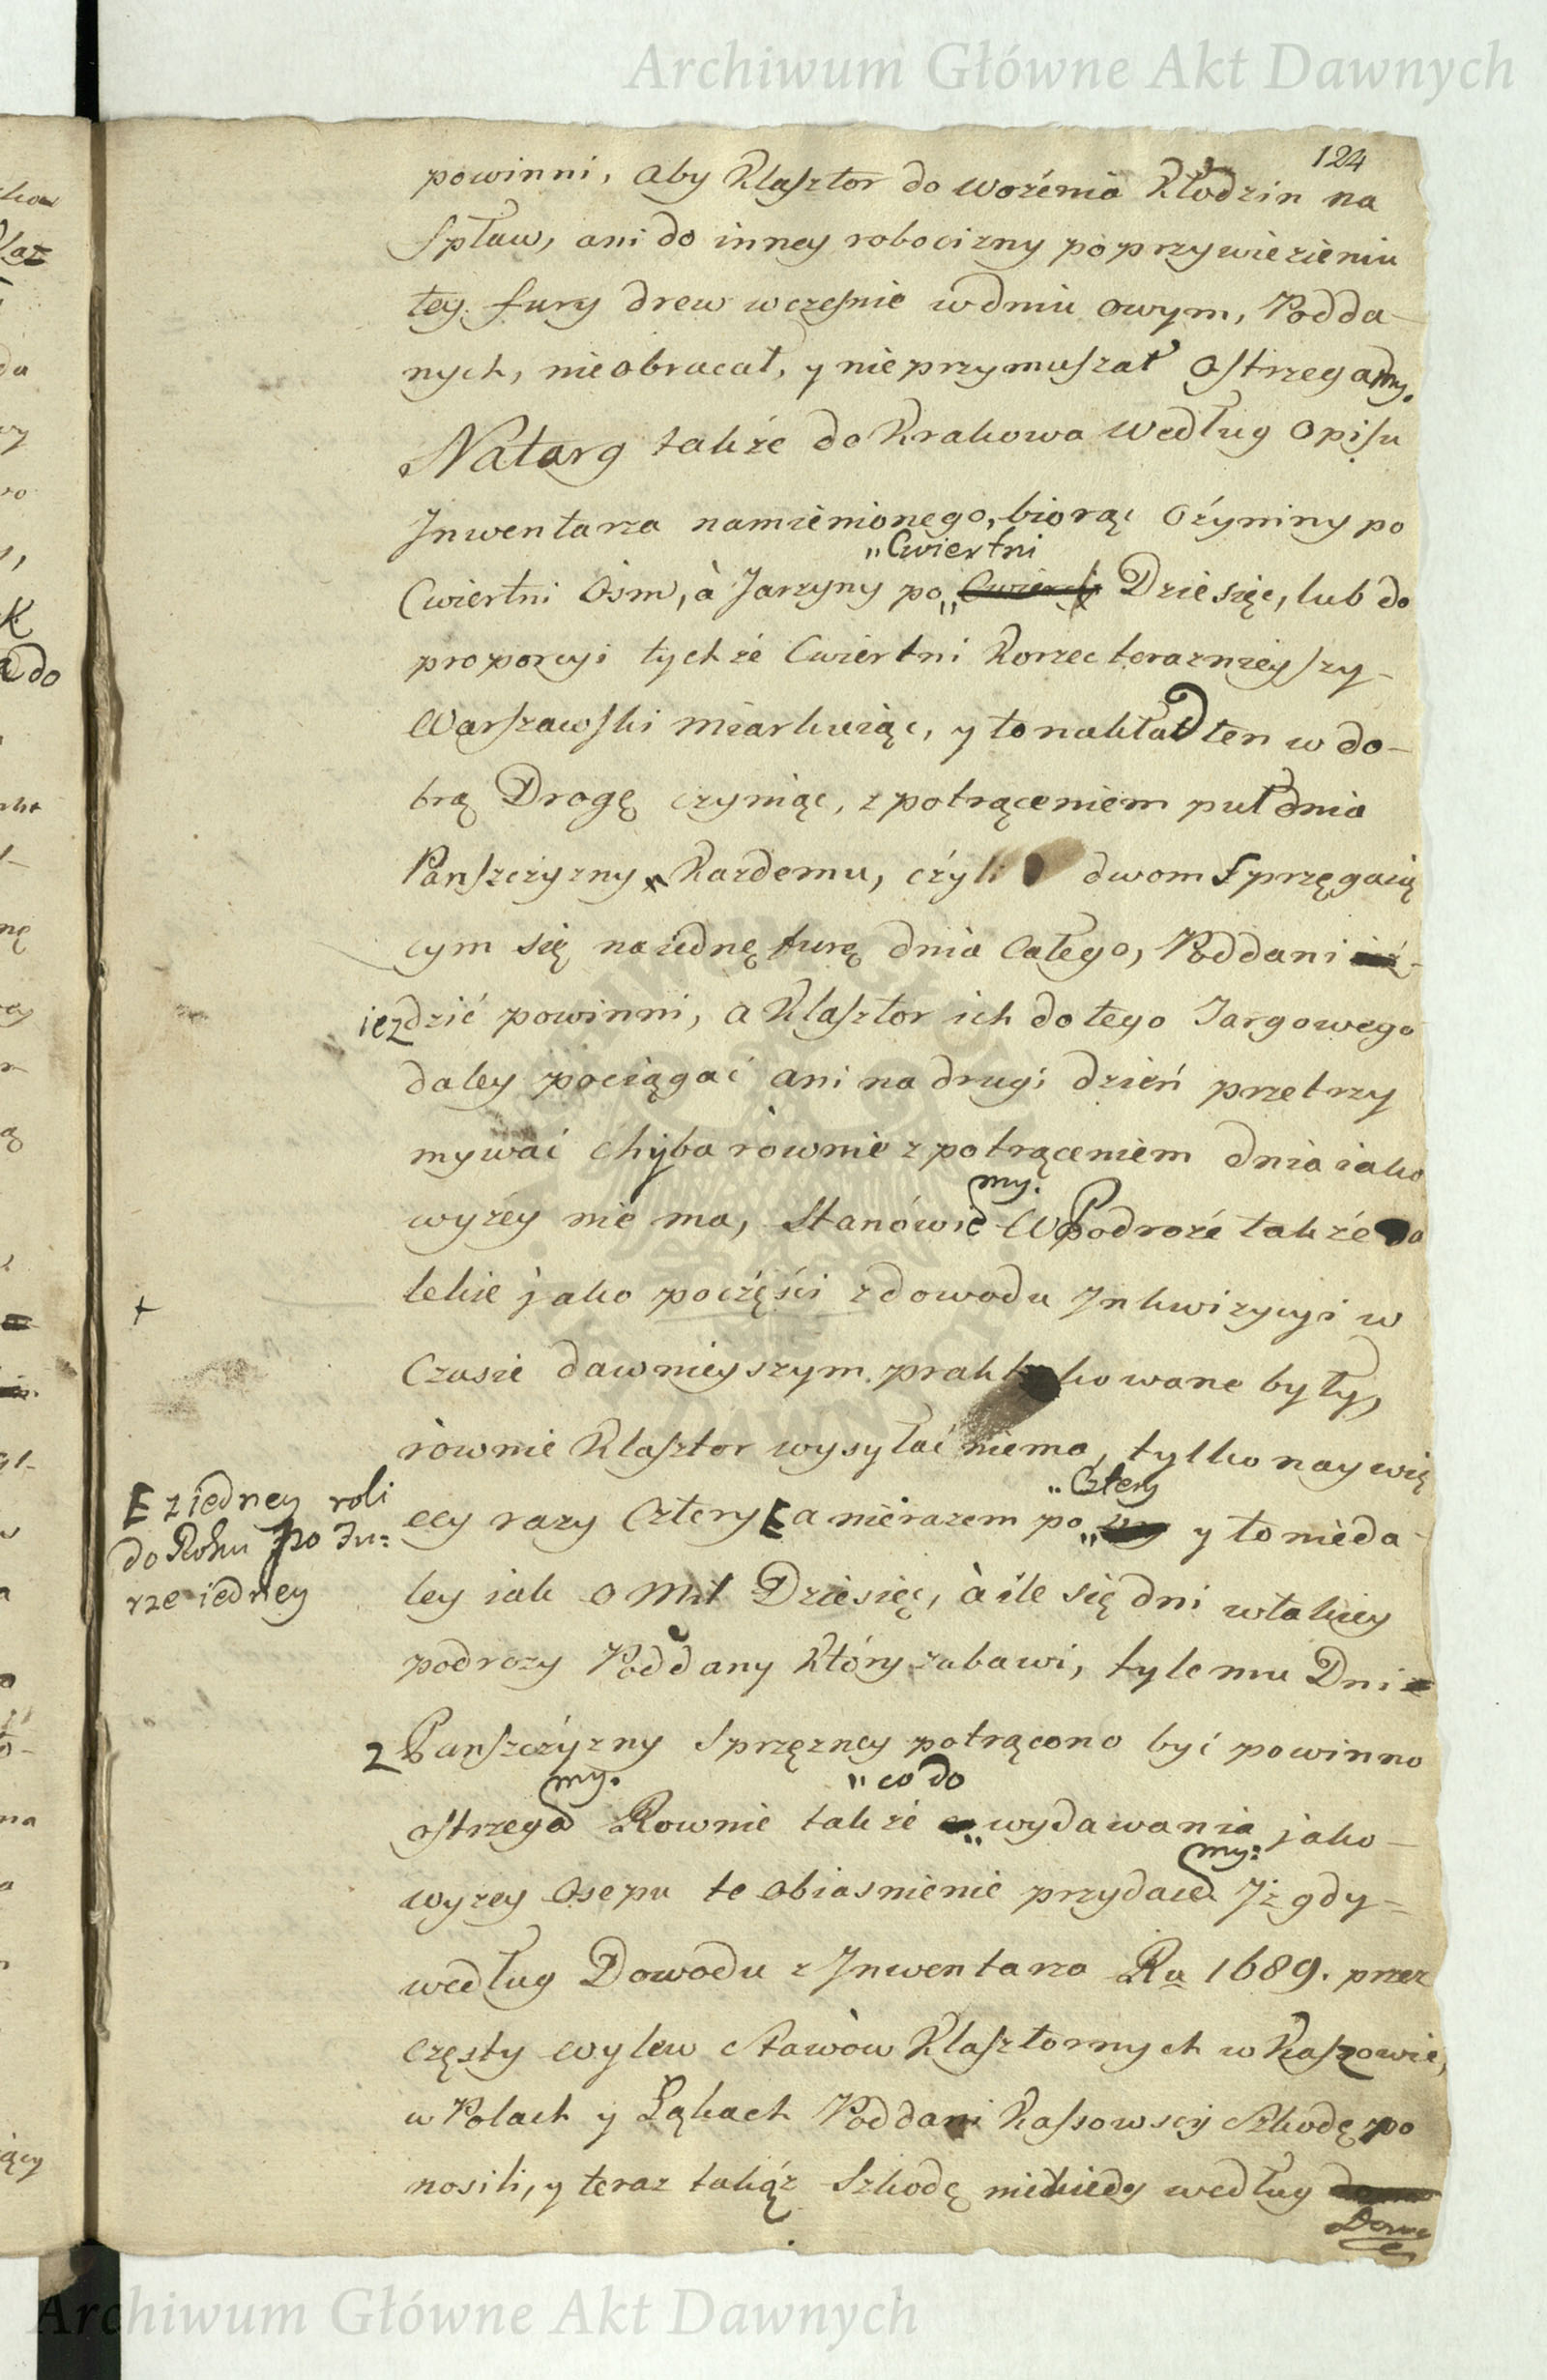 Archiwum Główne Akt Dawnych
124
powinni, aby Klasztor do woźenia Kłodzin na
Spław, ani do inney robocizny po przywiezieniu
tey fury drew wczesnie w dniu owym, Podda-
nych, nie obracał, y nie przymuszał ostrzegamy.
Na targ takźe do Krakowa według Opisu
Jnwentarza namienionego, biorąc Oźyminy po
"Cwiertni
Cwiertni Osm, à Jarzyny po" Dziesięc, lub do
proporcyi tychźe Cwiertni Korzec teraznieyszy-
Warszawski miarkuiąc, y to nakład ten w do-
brą Drogę czyniąc, z potrąceniem puł dnia
Panszczyzny Kazdemu, czyli dwom Sprzęgaią
cym się na iednę furę dnia Całego, Poddani
iezdzić powinni, a Klasztor ich do tego Targowego
daley pociągać ani na drugi dzień przetrzy
mywać chyba ròwnie z potrąceniem dnia iako
my.
wyzey nie ma, Stanówie W Podroźe takźe da
lekie jako poczęści z dowodu Jnkwizycyi w
+
Czasie dawnieyszym praktykowane były,
ròwnie Klasztor wysyłać niema, tylko naywię
"Cztery
ecy razy Cztery [ a nierazem po" y to nieda-
[ z iedney roli
do Roku po Fu=
rze iedney
ley iak o Mil Dziesięć, à ile się dni w takiey
podrozy Poddany Który zabawi, tyle mu Dni
z Panszczyzny Sprzęzney potrącono być powinno
my. "co do
ostrzega Rownie takźe " wydawania jako-
my:
wyzey Osepu te obiasnienie przydaie Jż gdy-
według Dowodu z Jnwentarza Ru 1689. przez
częsty wylew Stawòw Klasztornych w Kaszowie,
w Polach y Łąkach Poddani Kassowscy Szkodę po
nosili, y teraz takąż Szkodę niekiedy według
Dowo
Archiwum Główne Akt Dawnych